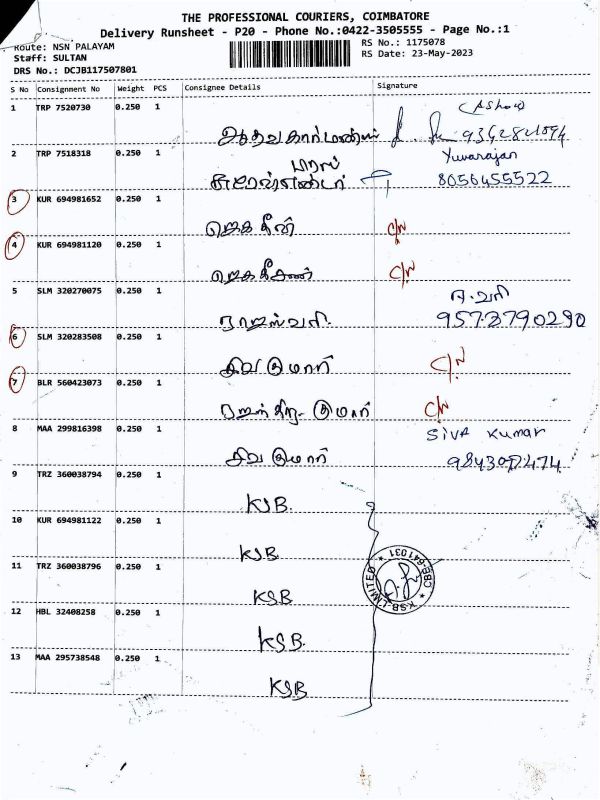 THE PROFESSIONAL COURIERS, COIMBATORE
Delivery Runsheet - P20 - Phone No.:0422-3505555 - Page No.:1
Route: NSN PALAYAM
RS No.: 1175078
Staff: SULTAN
RS Date: 23-May-2023
DRS No.: DCJB117507801
S No Consignment No Weight PCS Consignee Details Signature
1 TRP 7520730 0.250 1
2 TRP 7518318 0.250 1 Yuvarajan
8056455522
3 KUR 694981652 0.250 1
C/N
4 KUR 694981120 0.250 1
C/N
5 SLM 320270075 0.250 1
9573790290
6 SLM 320283508 0.250 1
சிவகுமார் C/N
7 BLR 560423073 0.250 1
குமார் C/N
8 MAA 299816398 0.250 1 SIVA KUMAR
சிவகுமார்
9 TRZ 360038794 0.250 1
KSB.
10 KUR 694981122 0.250 1
KSB
11 TRZ 360038796 0.250 1
KSB
KSB LIMITED * CBE-641031 *
12 HBL 32408258 0.250 1
KSB.
13 MAA 295738548 0.250 1
KSB